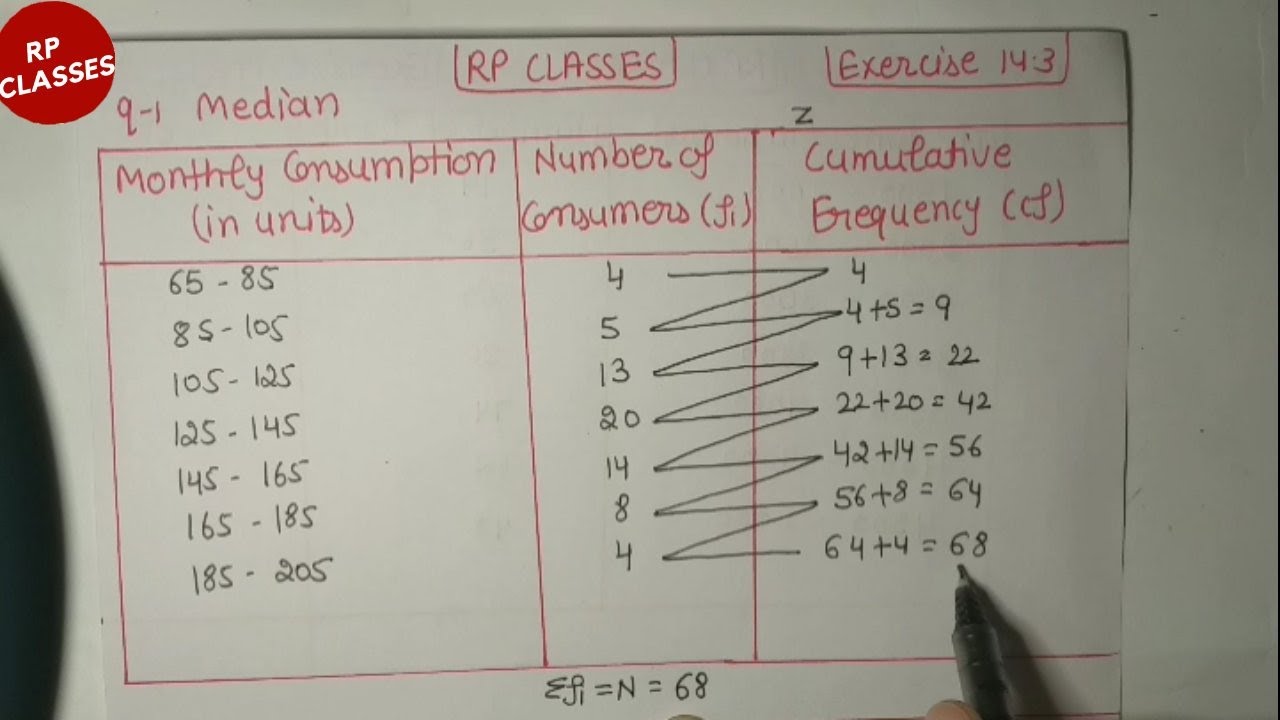 RP
CLASSES
RP CLASSES
Exercise 14.3
q-1 Median
z
Monthly Consumption
(in units)
Number of
Consumers (fi)
Cumulative
Frequency (cf)
65 - 85 4 4
85 - 105 5 4+5 = 9
105 - 125 13 9+13 = 22
125 - 145 20 22+20 = 42
145 - 165 14 42+14 = 56
165 - 185 8 56+8 = 64
185 - 205 4 64+4 = 68
Σfi = N = 68